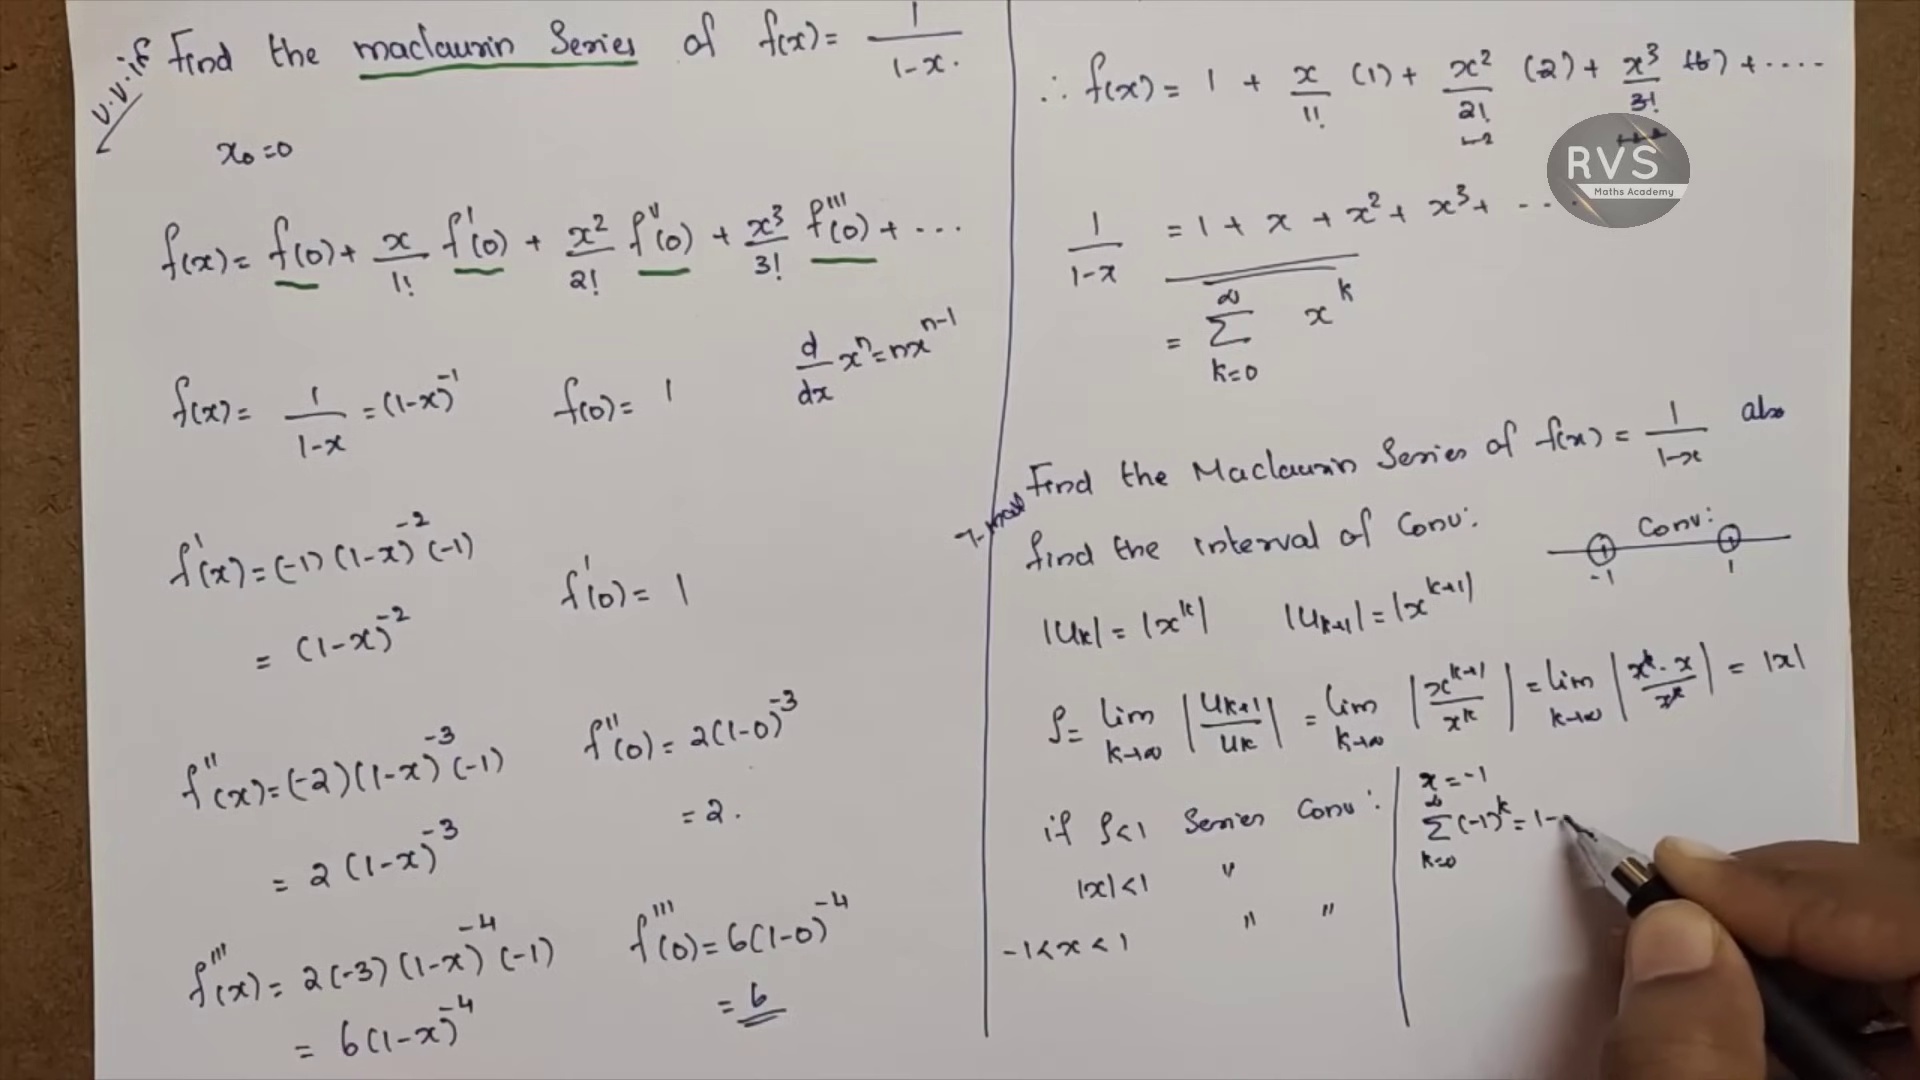 V.V.if Find the maclaurin Series of f(x) = 1/(1-x).
x₀ = 0
f(x) = f(0) + x/1! f'(0) + x²/2! f''(0) + x³/3! f'''(0) + ...
d/dx xⁿ = nxⁿ⁻¹
f(x) = 1/(1-x) = (1-x)⁻¹ f(0) = 1
f'(x) = (-1)(1-x)⁻²(-1) f'(0) = 1
= (1-x)⁻²
f''(x) = (-2)(1-x)⁻³(-1) f''(0) = 2(1-0)⁻³
= 2(1-x)⁻³ = 2.
f'''(x) = 2(-3)(1-x)⁻⁴(-1) f'''(0) = 6(1-0)⁻⁴
= 6(1-x)⁻⁴ = 6
∴ f(x) = 1 + x/1! (1) + x²/2! (2) + x³/3! (6) + ....
RVS
Maths Academy
1/(1-x) = 1 + x + x² + x³ + ...
= ∞ Σ k=0 xᵏ
Find the Maclaurin Series of f(x) = 1/(1-x) also
find the interval of Conv:
Conv:
-1 1
|Uk| = |xᵏ| |Uk+1| = |xᵏ⁺¹|
ρ = lim k→∞ |Uk+1/Uk| = lim k→∞ |xᵏ⁺¹/xᵏ| = lim k→∞ |xᵏ·x/xᵏ| = |x|
if ρ<1 Series Conv:
|x|<1 "
-1<x<1 " "
x = -1
∞ Σ k=0 (-1)ᵏ = 1-